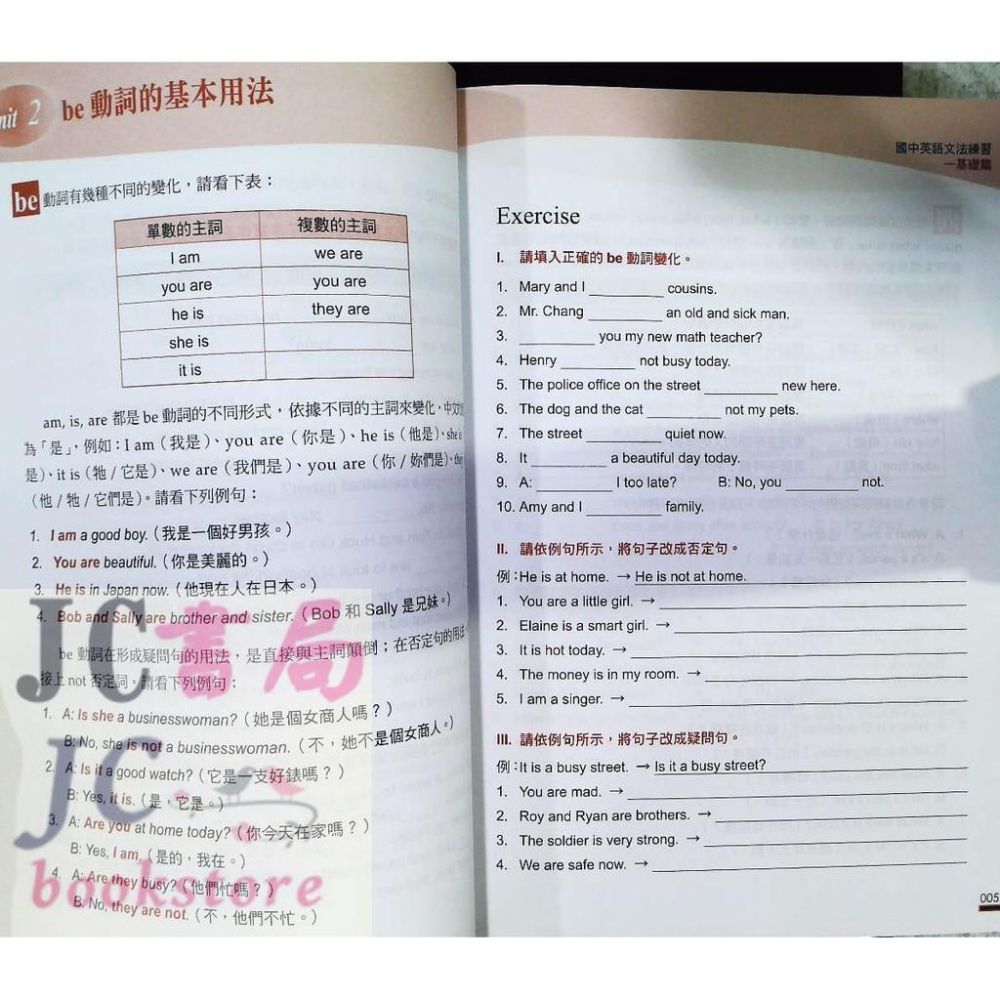 Unit 2 be 動詞的基本用法
be 動詞有幾種不同的變化，請看下表：
單數的主詞 複數的主詞
I am we are
you are you are
he is they are
she is
it is
am, is, are 都是 be 動詞的不同形式，依據不同的主詞來變化，中文
為「是」，例如：I am（我是）、you are（你是）、he is（他是）、she is
是）、it is（牠 / 它是）、we are（我們是）、you are（你 / 妳們是）、they
（他 / 牠 / 它們是）。請看下列例句：
1. I am a good boy.（我是一個好男孩。）
2. You are beautiful.（你是美麗的。）
3. He is in Japan now.（他現在人在日本。）
4. Bob and Sally are brother and sister.（Bob 和 Sally 是兄妹。）
be 動詞在形成疑問句的用法，是直接與主詞顛倒；在否定句的用法
接上 not 否定詞。請看下列例句：
1. A: Is she a businesswoman?（她是個女商人嗎？）
B: No, she is not a businesswoman.（不，她不是個女商人。）
2. A: Is it a good watch?（它是一支好錶嗎？）
B: Yes, it is.（是，它是。）
3. A: Are you at home today?（你今天在家嗎？）
B: Yes, I am.（是的，我在。）
4. A: Are they busy?（他們忙嗎？）
B: No, they are not.（不，他們不忙。）
JC書局
JC
bookstore
國中英語文法練習
—基礎篇
Exercise
I. 請填入正確的 be 動詞變化。
1. Mary and I ________ cousins.
2. Mr. Chang ________ an old and sick man.
3. ________ you my new math teacher?
4. Henry ________ not busy today.
5. The police office on the street ________ new here.
6. The dog and the cat ________ not my pets.
7. The street ________ quiet now.
8. It ________ a beautiful day today.
9. A: ________ I too late? B: No, you ________ not.
10. Amy and I ________ family.
II. 請依例句所示，將句子改成否定句。
例：He is at home. → He is not at home.
1. You are a little girl. →
2. Elaine is a smart girl. →
3. It is hot today. →
4. The money is in my room. →
5. I am a singer. →
III. 請依例句所示，將句子改成疑問句。
例：It is a busy street. → Is it a busy street?
1. You are mad. →
2. Roy and Ryan are brothers. →
3. The soldier is very strong. →
4. We are safe now. →
005